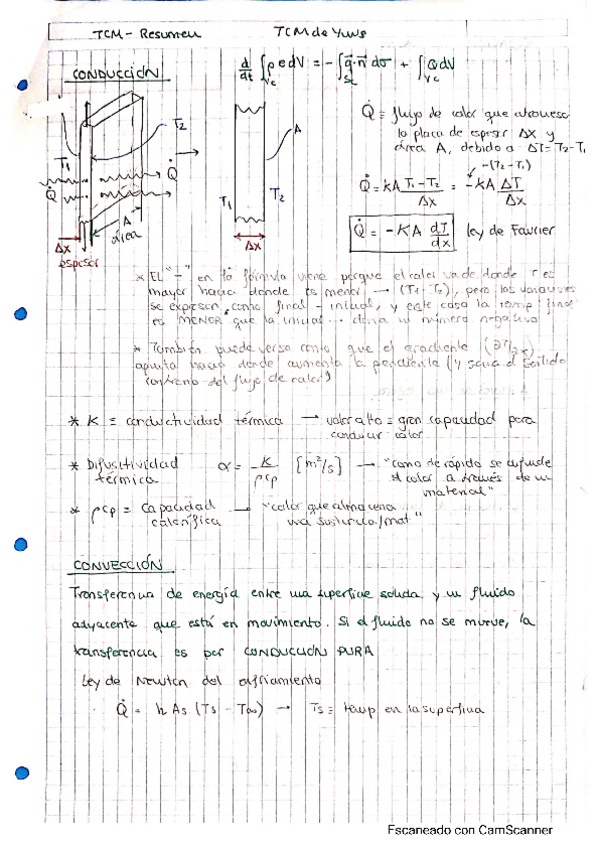 TCM - Resumen
TCM de Yuns
CONDUCCIÓN
d/dt ∫vc ρ e dV = - ∫sc q⃗·n⃗ dσ + ∫vc Q dV
T1
T2
Q̇
Q̇
A
área
Δx
espesor
A
T1
T2
Δx
Q̇ = flujo de calor que atraviesa
la placa de espesor Δx y
área A, debido a ΔT = T2 - T1
-(T2 - T1)
Q̇ = kA (T1 - T2)/Δx = -kA ΔT/Δx
Q̇ = -KA dT/dx ley de Fourier
* EL "-" en la fórmula viene porque el calor va de donde T es
mayor hacia donde es menor → (T1 - T2), pero las variaciones
se expresan como final - inicial, y en este caso la temp final
es MENOR que la inicial ... daría un número negativo
* También puede verse como que el gradiente (∂T/∂x)
apunta hacia donde aumenta la pendiente (y sería el sentido
contrario del flujo de calor)
* K = conductividad térmica → valor alto = gran capacidad para
conducir calor
* Difusitividad térmica α = K/ρcp [m²/s] → "como de rápido se difunde
el calor a través de un
material"
* ρcp = capacidad calorífica → "calor que almacena
una sustancia/mat"
CONVECCIÓN
Transferencia de energía entre una superficie solida y un fluido
adyacente que está en movimiento. Si el fluido no se mueve, la
transferencia es por CONDUCCIÓN PURA
Ley de Newton del enfriamiento
Q̇ = h As (Ts - T∞) → Ts = temp en la superficie
Escaneado con CamScanner